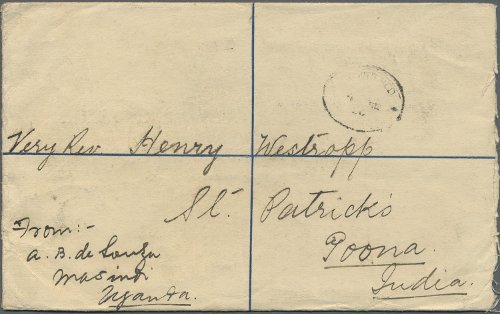 Very Rev Henry Westropp
St. Patrick's
Poona.
India.
From:-
A. B. de Souza
Masindi
Uganda.